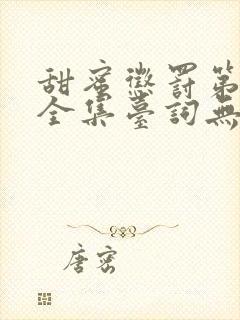 甜蜜懲罰第
全集臺詞無
唐密